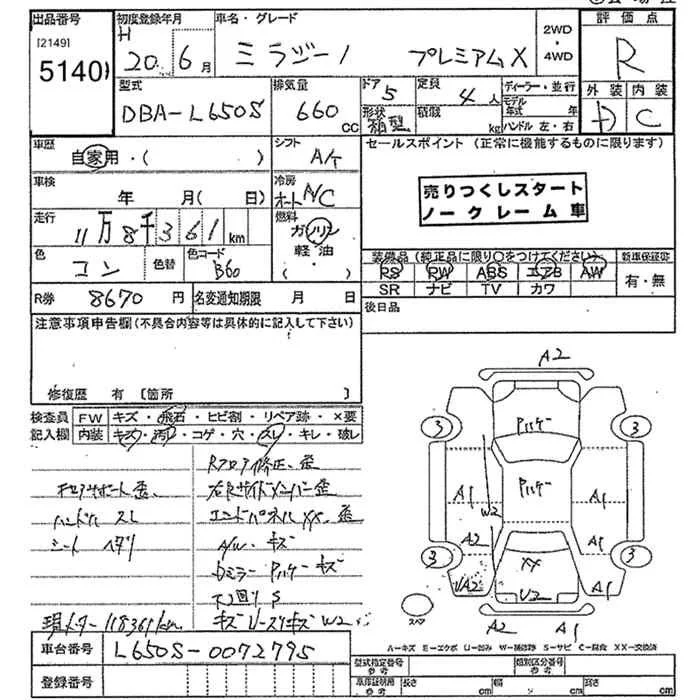 出品番号
[2149]
5140
初度登録年月
H 20年 6月
車名・グレード
ミラジーノ プレミアムX
2WD
・
4WD
評価点
R
外装 内装
D C
型式
DBA-L650S
排気量
660 CC
ドア 5
形状 箱型
定員 4人
積載 kg
ディーラー・並行
モデル年式 年
ハンドル 左・右
車歴
自家用・( )
シフト
A/T
セールスポイント (正常に機能するものに限ります)
売りつくしスタート
ノークレーム車
車検
年 月( 日)
冷房
オート A/C
走行
11万8千361km
燃料
ガソリン
軽油
・( )
色
コン
色替
色コード
B60
装備品(純正品に限り○をつけてください)
RS RW ABS エアB AW
SR ナビ TV カワ
新車保証書
有・無
R券 8670円
名変通知期限 月 日
後日品
注意事項申告欄(不具合内容等は具体的に記入して下さい)
修復歴 有 [箇所 ]
検査員 FW キズ・飛石・ヒビ割・リペア跡・×要
記入欄 内装 キズ・汚レ・コゲ・穴・スレ・キレ・破レ
Rフロア修正、歪
右Rサイドメンバー歪
ハンドル スレ
エンドパネルXX、歪
シート ヘタリ
A/W キズ
Dミラー Pハゲ キズ
下回り S
現メーター118361km
キズ U・スリキズ W2
A2
Pハゲ
3
3
Pハゲ
A1
W2
A1
A2
A1
3
3
XX
UA2
U2
A1
スペア
A2
A1
A-キズ E-エクボ U-凹み W-補修跡 S-サビ C-腐食 XX-交換済
車台番号 L650S-0072795
登録番号
型式指定番号 参考
類別区分番号 参考
車庫証明用 参考 長さ cm 幅 cm 高さ cm